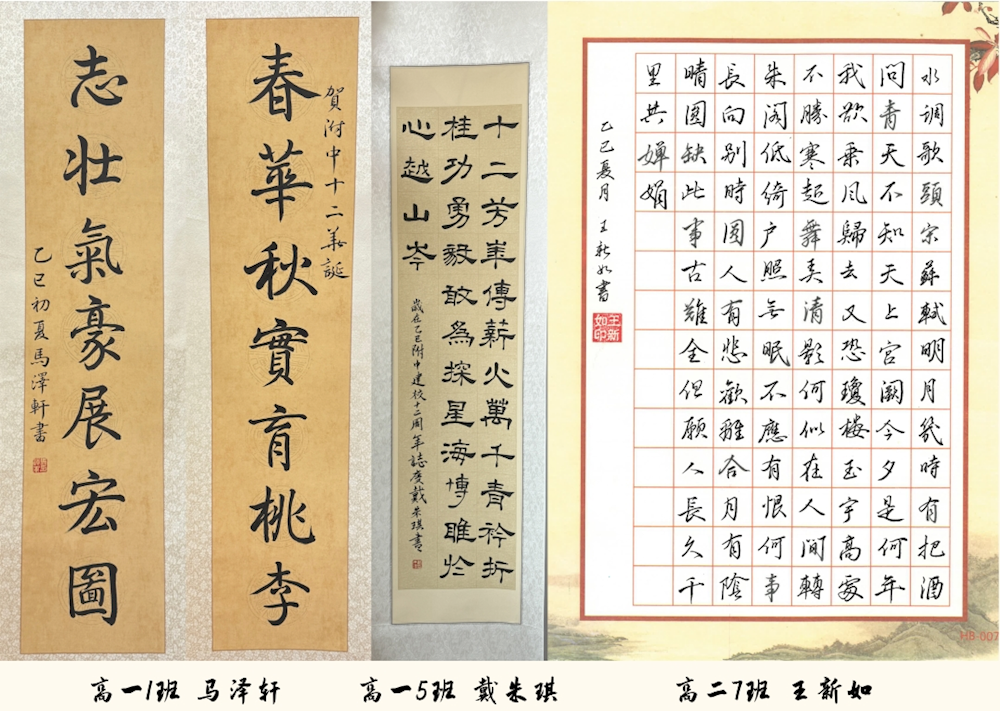 賀附中十二華誕
春華秋實育桃李
志壯氣豪展宏圖
乙巳初夏馬澤軒書
十二芳華傳薪火萬千青衿折
桂功勇毅敢為探星海博雅於
心越山岑
歲在乙巳附中建校十二周年誌慶戴朱琪書
水调歌頭宋蘇軾明月幾時有把酒
問青天不知天上宮闕今夕是何年
我欲乘風歸去又恐瓊樓玉宇高處
不勝寒起舞弄清影何似在人间轉
朱阁低绮户照無眠不應有恨何事
長向别時圆人有悲歡離合月有陰
晴圆缺此事古難全但願人長久千
里共嬋娟
乙巳夏月 王新如書
王新如印
HB-007
高一1班 马泽轩
高一5班 戴朱琪
高二7班 王新如